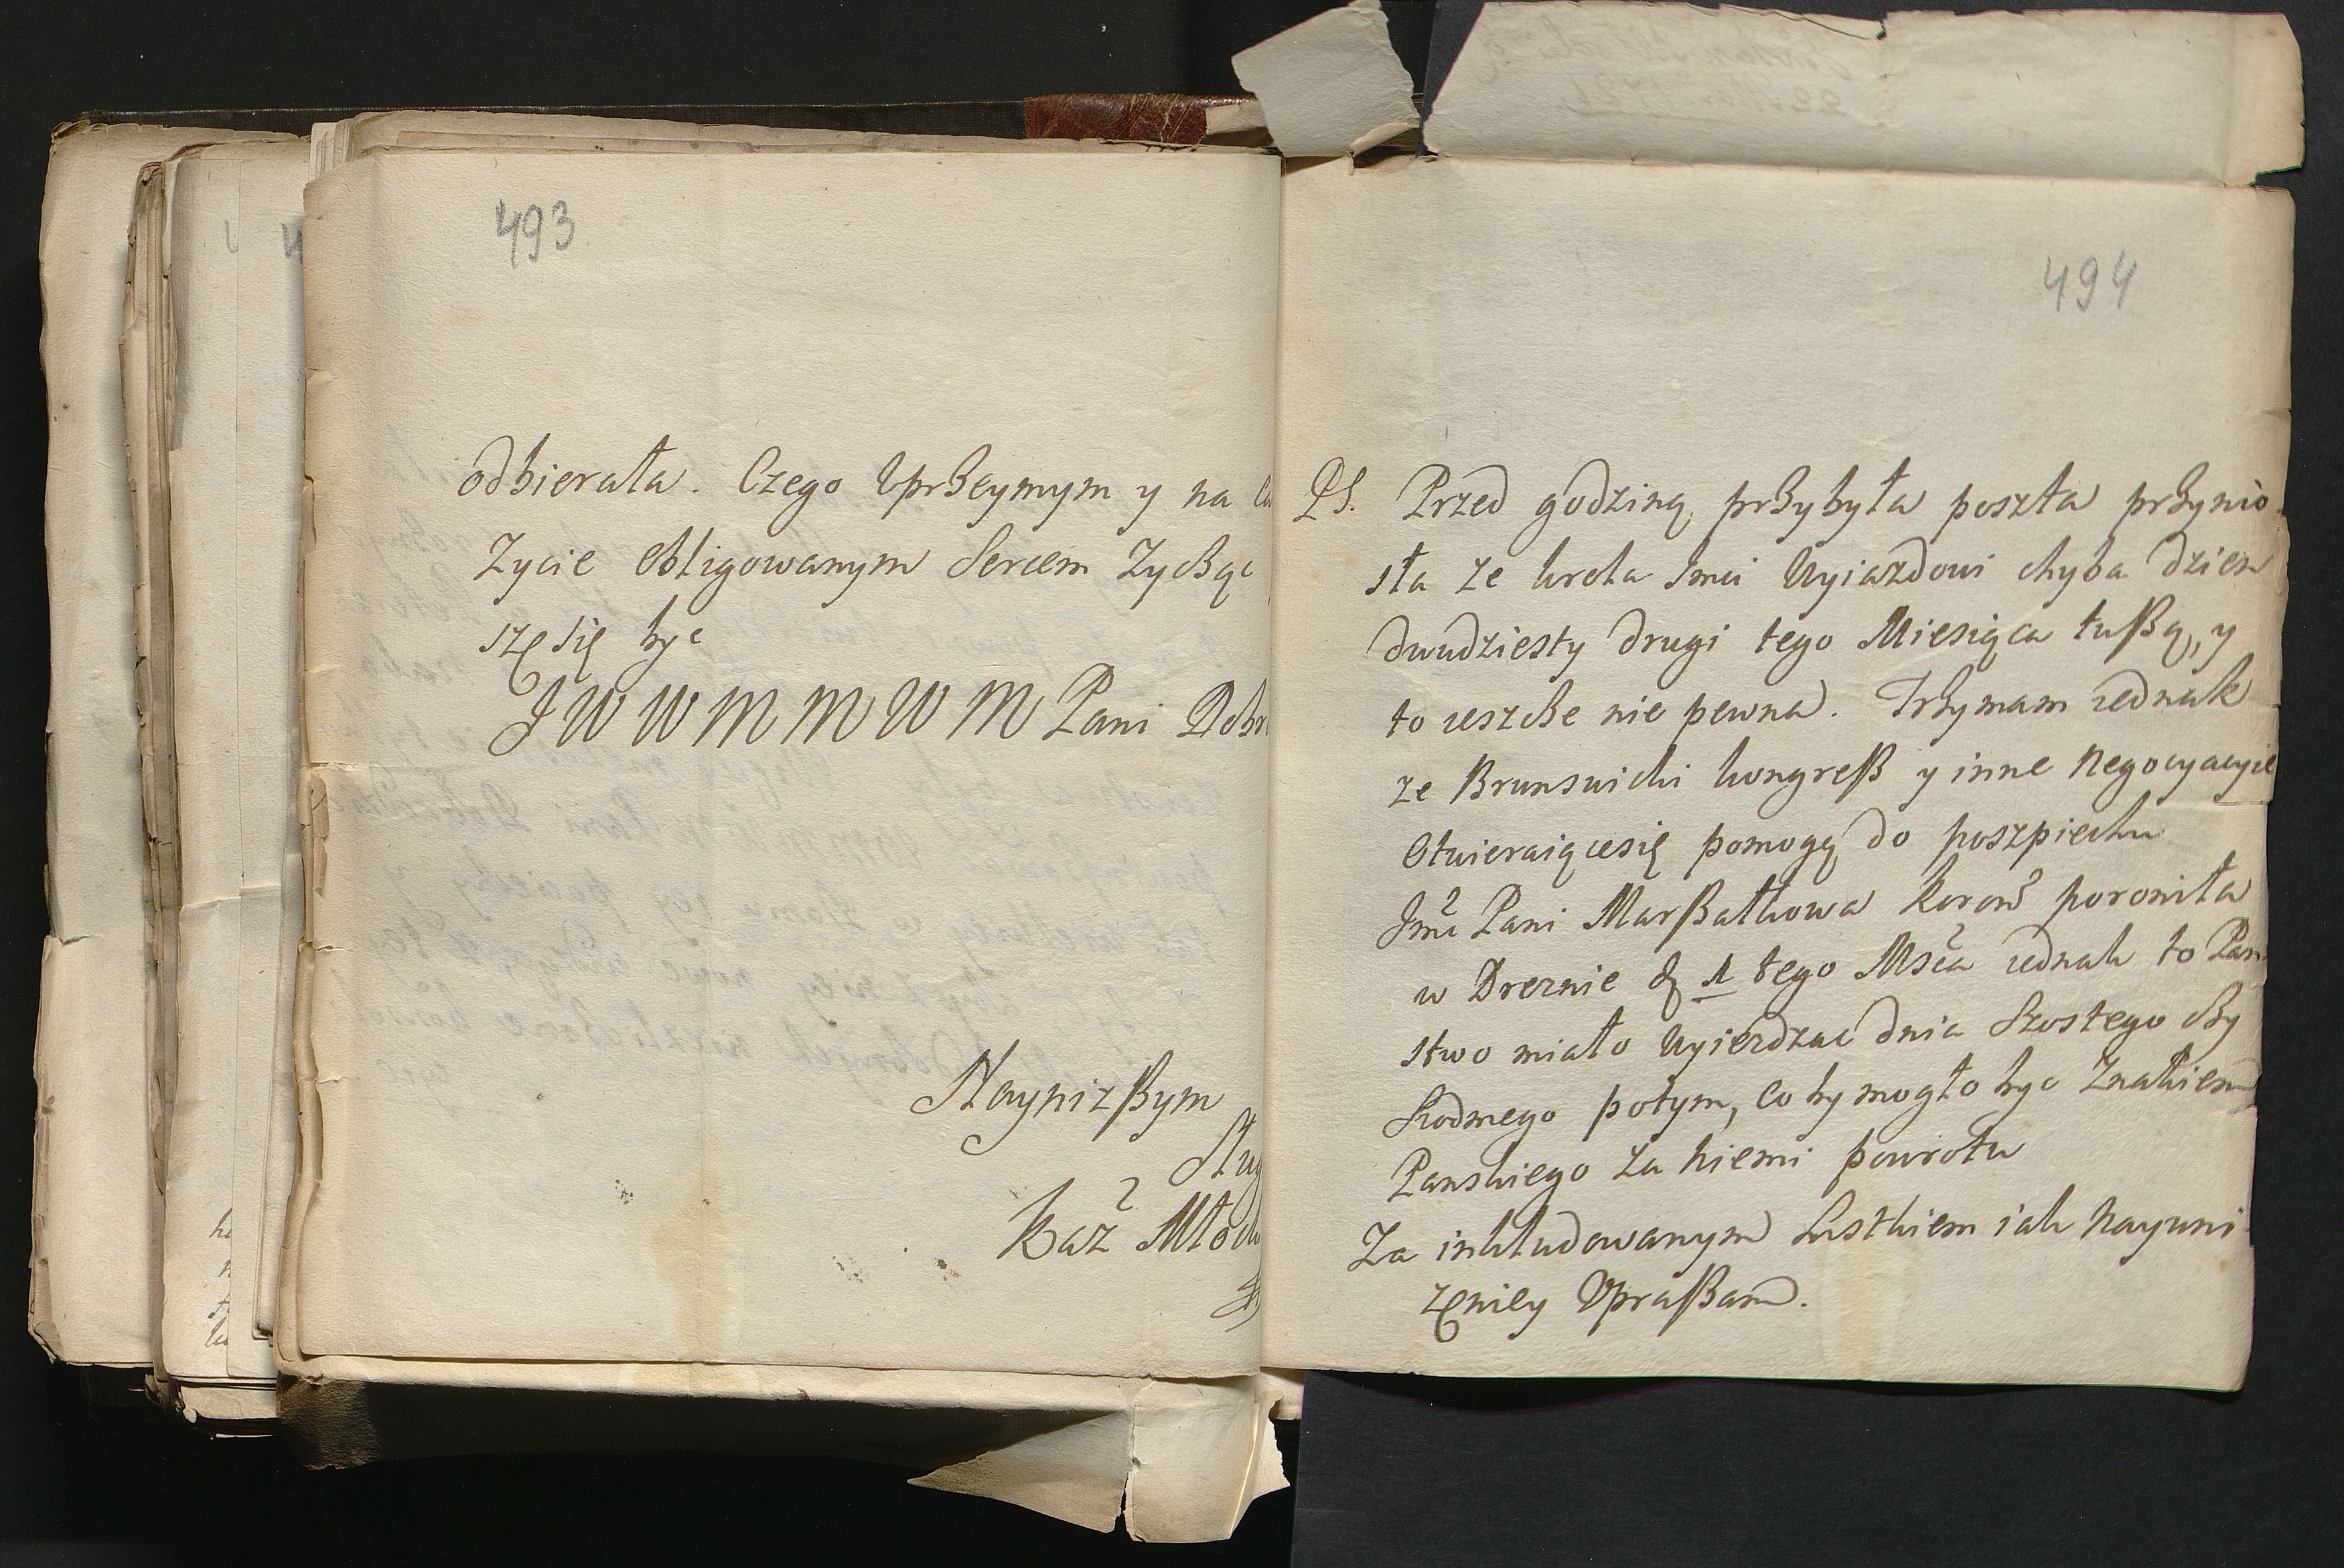 493
odbierała. Czego Uprßeymym y na
Zycie Obligowanym Sercem Zycząc
szę się byc
J W W M M W M Pani Dobr
Nayniżßym
Sług
Kaz Młod
494
PS. Przed godziną przybyła poszta przynio
sła ze krola Jmci Wyiazdowi chyba dzien
dwudziesty drugi tego Miesiąca tußą, y
to ieszcze nie pewna. Trzymam iednak
ze Brunswicki kongreß y inne Negocyacyie
Otwieraiące się pomogą do poszpiechu
Jmć Pani Marßałkowa Koron poroniła
w Dreznie d 1 tego Msca iednak to Pan
stwo miało Wyierdzac dnia Szostego czy
Siodmego potym, co by mogło byc Znakiem
Panskiego za niemi powrotu
Za inkludowanym Listkiem iak Nayuni
zeniey Upraßam.